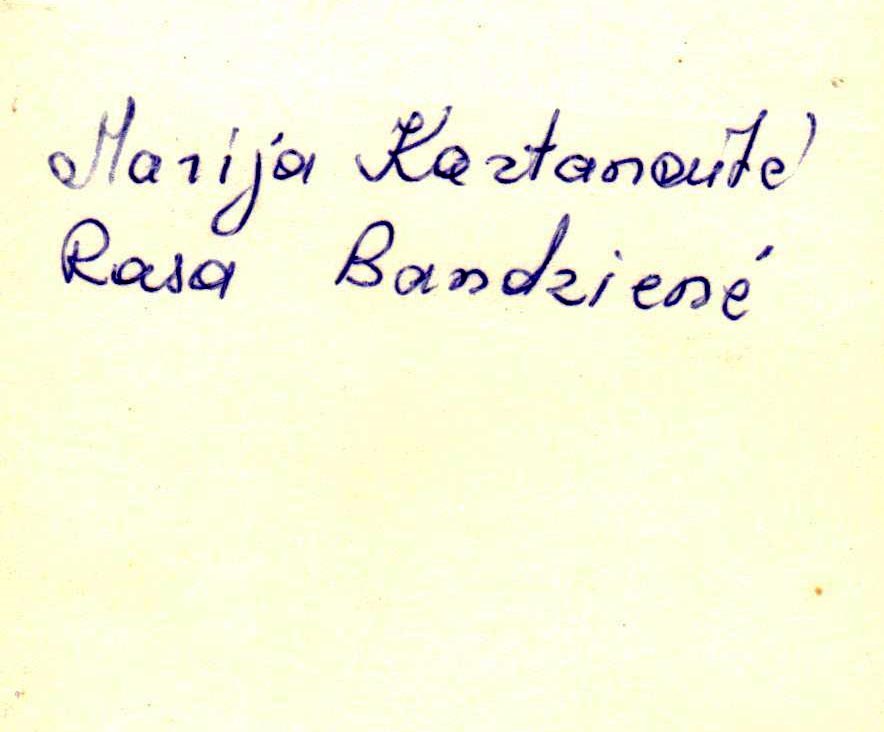 Marija Kartanaitė
Rasa Bandzienė